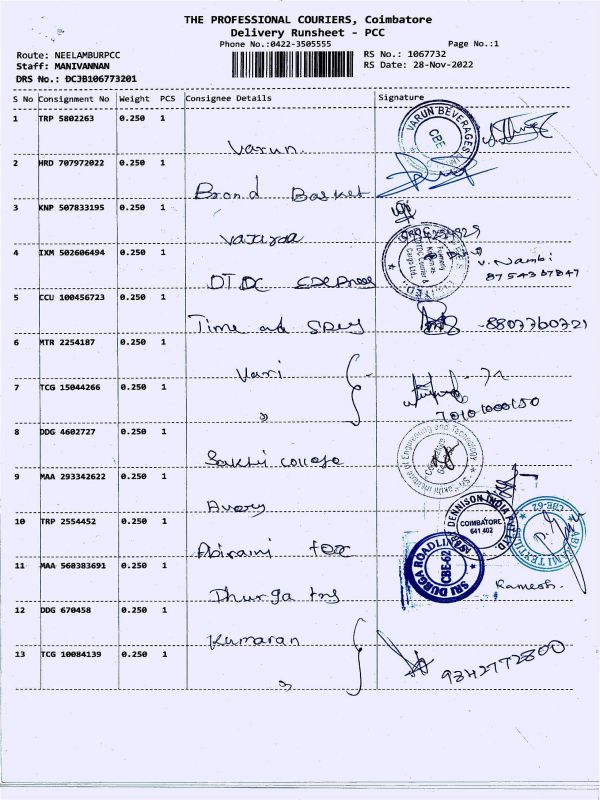 THE PROFESSIONAL COURIERS, Coimbatore
Delivery Runsheet - PCC
Phone No.:0422-3505555
Page No.:1
Route: NEELAMBURPCC
RS No.: 1067732
Staff: MANIVANNAN
RS Date: 28-Nov-2022
DRS No.: DCJB106773201
S No Consignment No Weight PCS Consignee Details Signature
1 TRP 5802263 0.250 1
Varun
VARUN BEVERAGES
CBE
2 HRD 707972022 0.250 1
Brand Basket
3 KNP 507833195 0.250 1
4 IXM 502606494 0.250 1
DTDC
Formerly Known as
Courier &
Cargo Ltd.
V. Nambi
8754307847
5 CCU 100456723 0.250 1
Time and
8807760721
6 MTR 2254187 0.250 1
Hari
7 TCG 15044266 0.250 1
8 DDG 4602727 0.250 1
Sakthi college
Institute of Engineering and Technology
9 MAA 293342622 0.250 1
Avery
DENNISON INDIA PVT LTD
COIMBATORE
641 402
10 TRP 2554452 0.250 1
Abirami tex
ABIRAMI TEXTILES
CBE-62
11 MAA 560383691 0.250 1
Thurga
SRI DURGA ROADLINES
CBE-62
Ramesh.
12 DDG 670458 0.250 1
Kumaran
13 TCG 10084139 0.250 1
9342772800